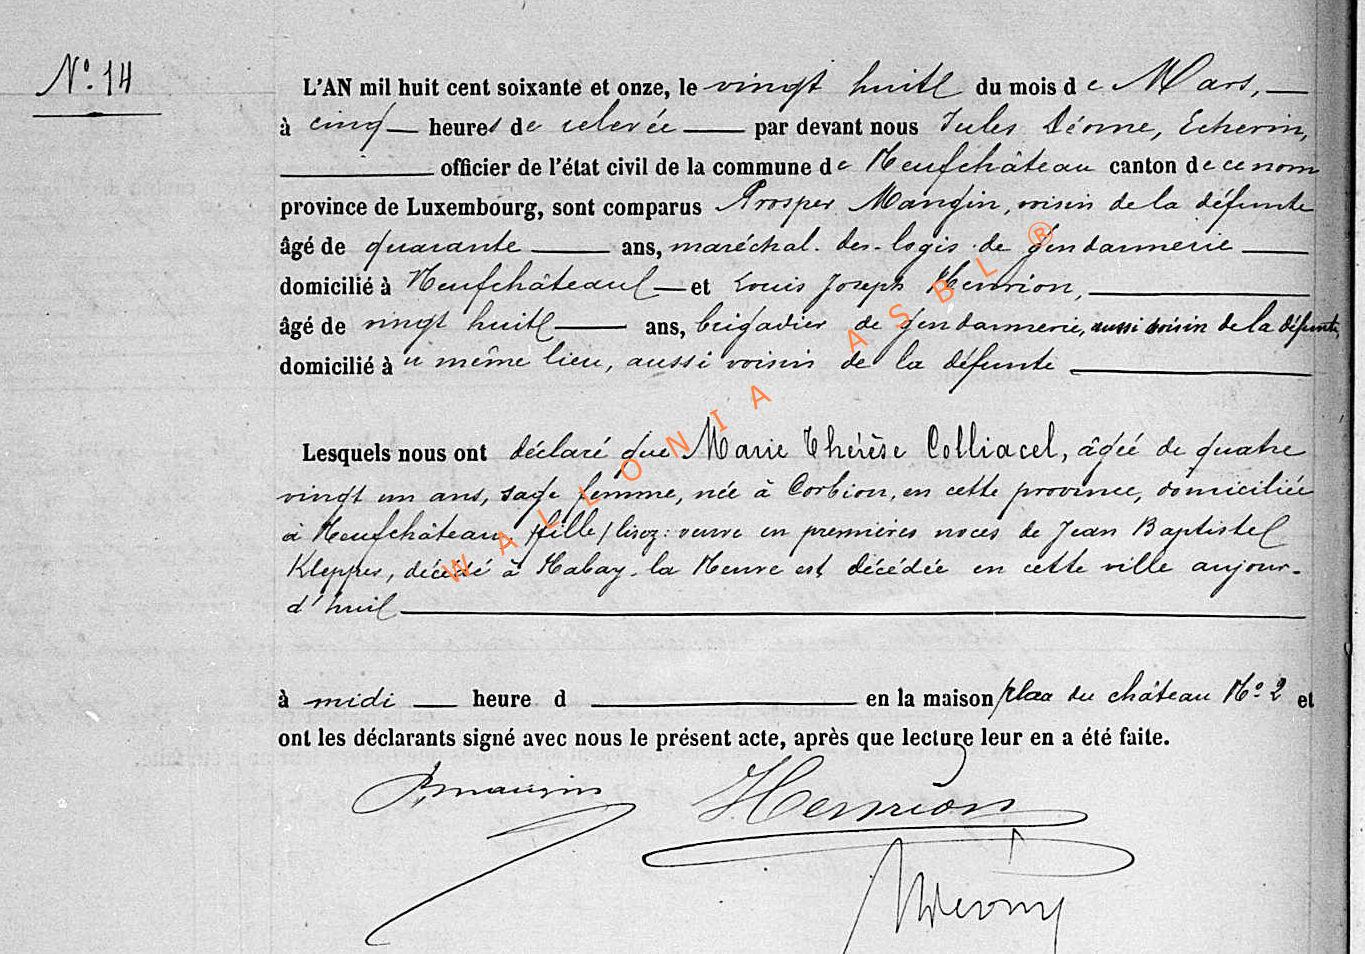 N° 14
L'AN mil huit cent soixante et onze, le vingt huit du mois de Mars,
à cinq heures de relevée par devant nous Jules Déome, Echevin,
officier de l'état civil de la commune de Neufchâteau canton de ce nom
province de Luxembourg, sont comparus Prosper Mangin, voisin de la défunte
âgé de quarante ans, maréchal-des-logis de gendarmerie
domicilié à Neufchâteau et Louis Joseph Henrion,
âgé de vingt huit ans, brigadier de gendarmerie, aussi voisin de la défunte,
domicilié à u même lieu, aussi voisin de la défunte
Lesquels nous ont déclaré que Marie Thérèse Colliacel, âgée de quatre
vingt un ans, sage femme, née à Corbion, en cette province, domiciliée
à Neufchâteau, (fille) lisez: veuve en premières noces de Jean Baptiste
Kleppes, décédé à Habay-la Neuve est décédée en cette ville aujour-
d'hui
à midi heure d en la maison place du château N° 2 et
ont les déclarants signé avec nous le présent acte, après que lecture leur en a été faite.
P. mangin
Henrion
WALLONIA ASBL ®